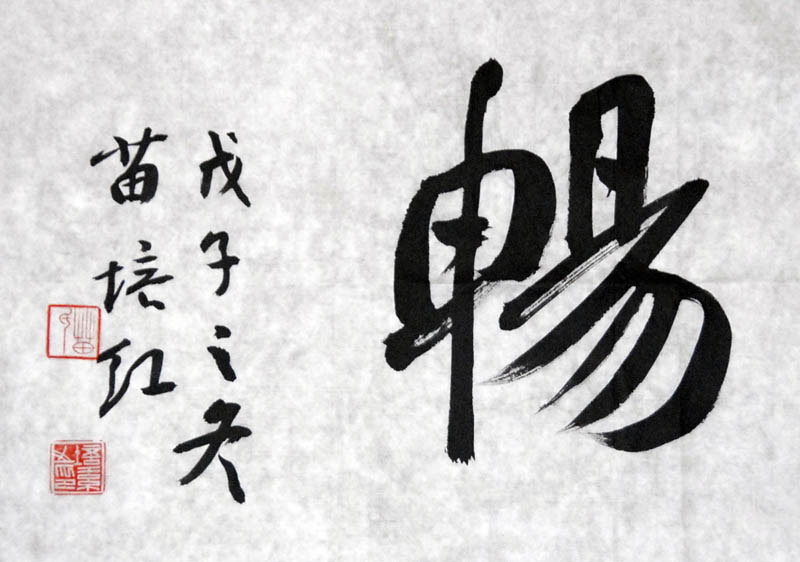 暢
戊子之冬
苗培红